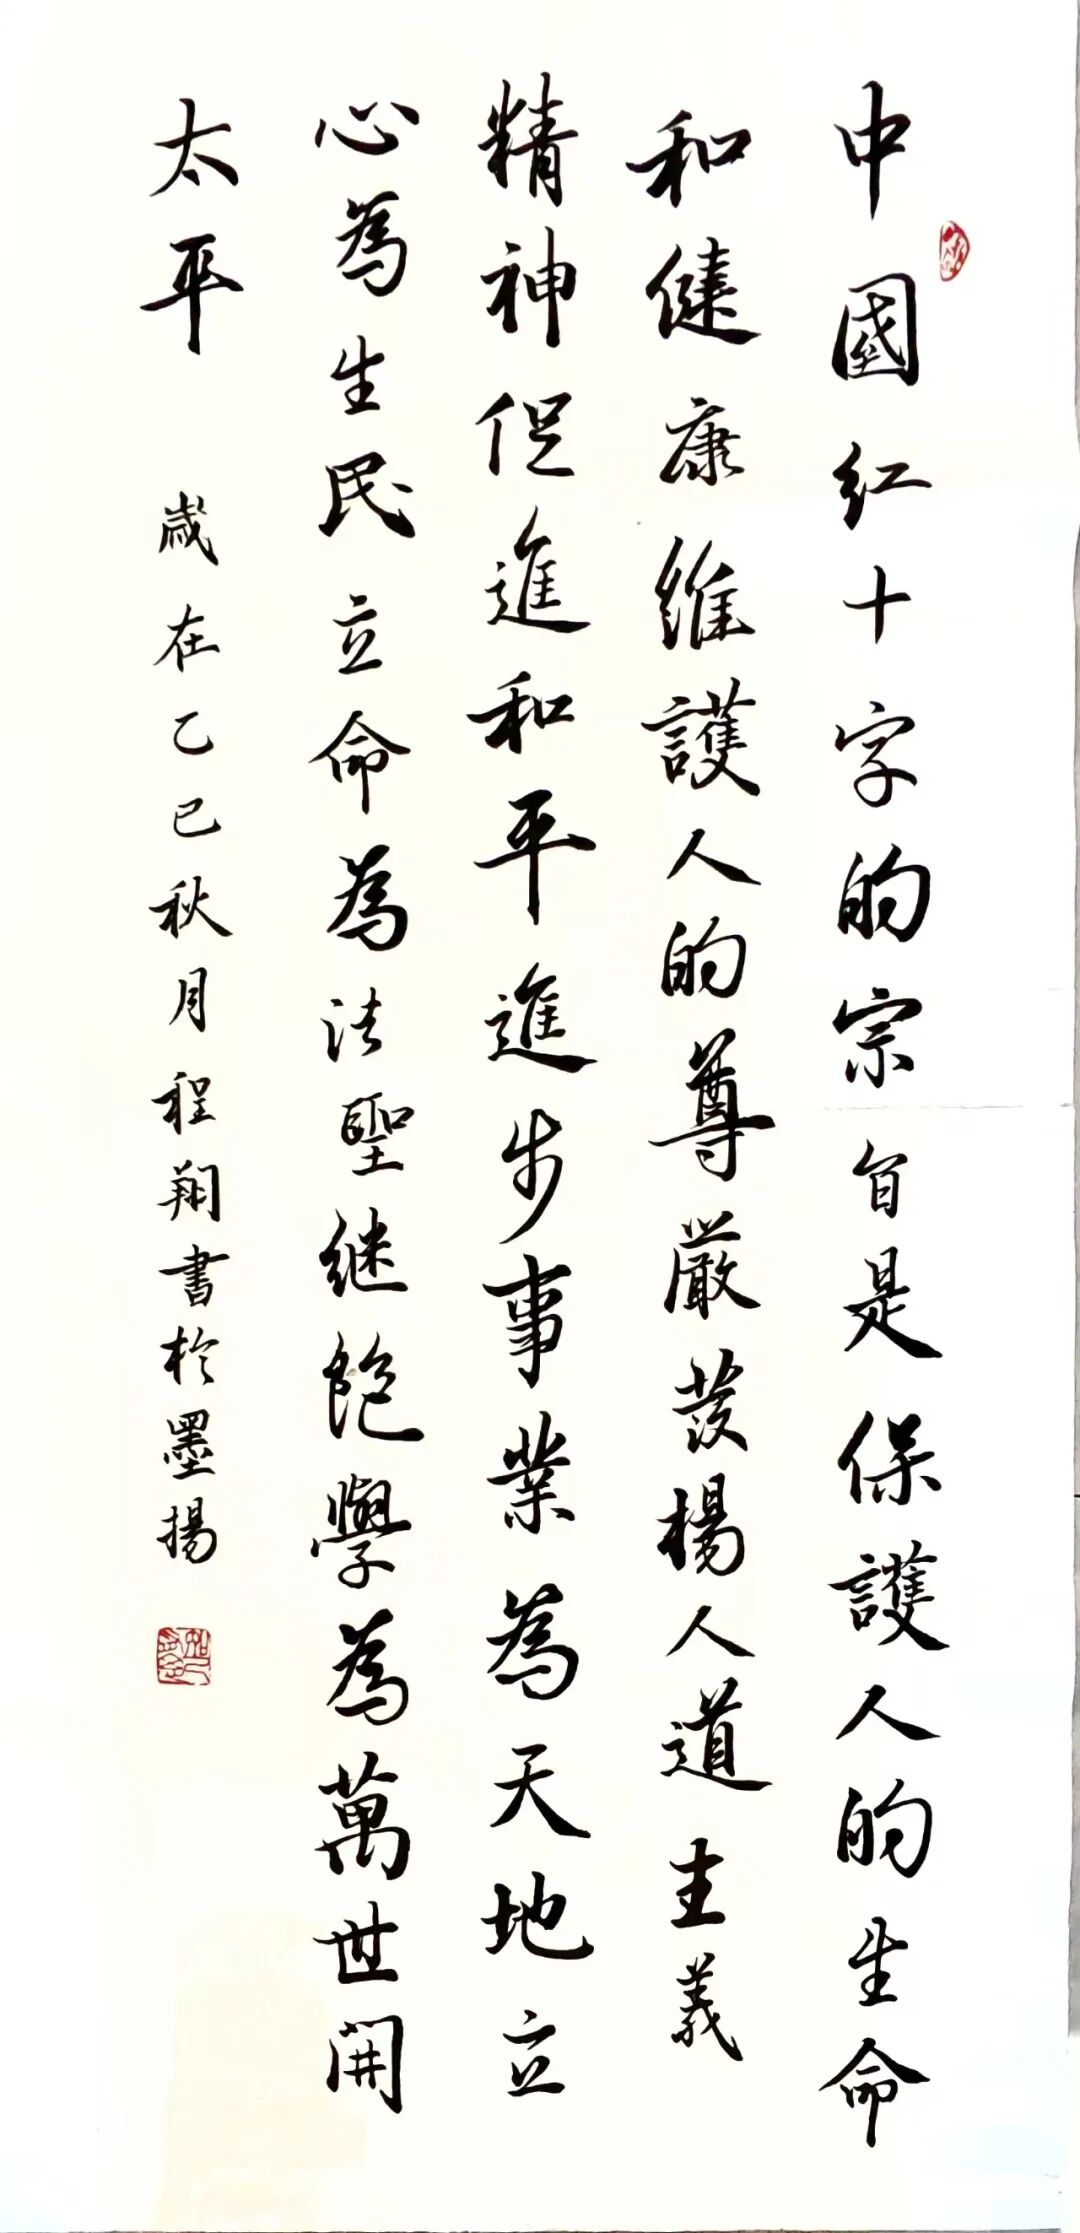 中國红十字的宗旨是保護人的生命
和健康維護人的尊严發楊人道主義
精神促進和平進步事業為天地立
心為生民立命為法聖継飽學為萬世開
太平 歲在乙巳秋月程翔書於墨揚